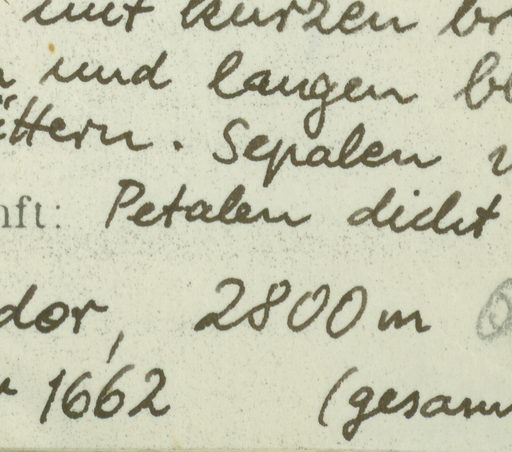 mit kurzen br
und langen bl
ättern. Sepalen
nft: Petalen dicht
dor, 2800 m
1662 (gesam